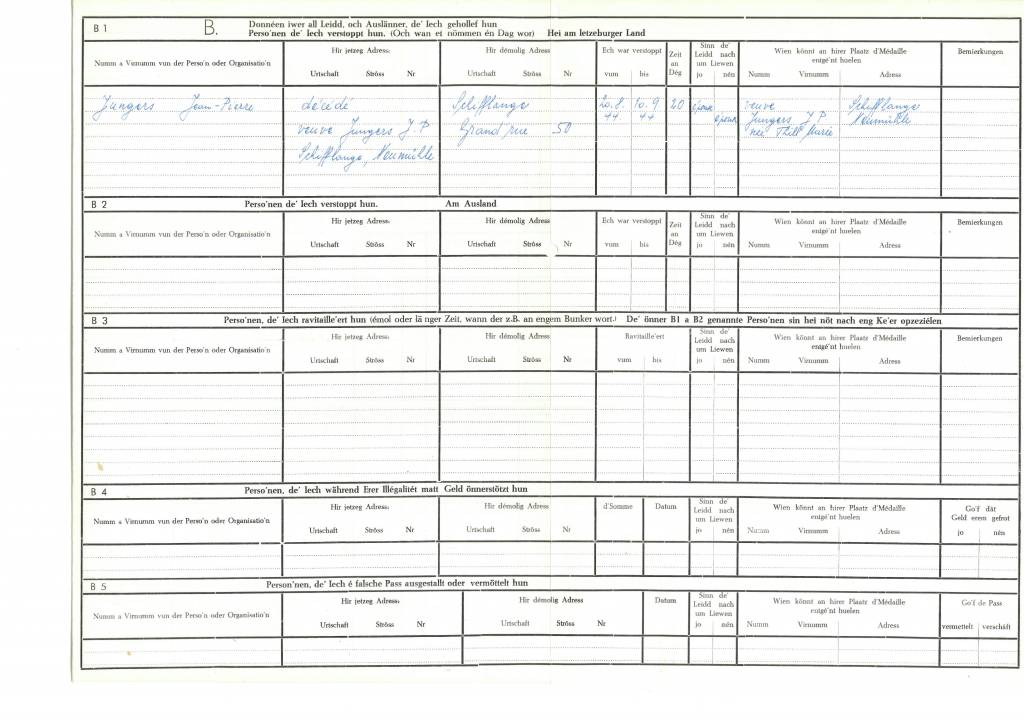 B 1 B. Donnéen iwer all Leidd, och Auslänner, de' Iech gehollef hun
Perso'nen de' Iech verstoppt hun. (Och wan et nömmen én Dag wor) Hei am letzeburger Land
Numm a Virnumm vun der Perso'n oder Organisatio'n
Hir jetzeg Adress:
Urtschaft Ströss Nr
Hir démolig Adress
Urtschaft Ströss Nr
Ech war verstoppt
vum bis
Zeit an Dég
Sinn de' Leidd nach um Liewen
jo nén
Wien könnt an hirer Plaatz d'Médaille
entgé'nt huelen
Numm Virnumm Adress
Bemierkungen
Jungers Jean-Pierre décédé Schifflange 20.8. 10.9 20 épouse veuve Schifflange
44 44 époux Jungers J P Neumühle
veuve Jungers J. P Grand'rue 50 née Thill Marie
Schifflange, Neumühle
B 2 Perso'nen de' Iech verstoppt hun. Am Ausland
Numm a Virnumm vun der Perso'n oder Organisatio'n
Hir jetzeg Adress:
Urtschaft Ströss Nr
Hir démolig Adress
Urtschaft Ströss Nr
Ech war verstoppt
vum bis
Zeit an Dég
Sinn de' Leidd nach um Liewen
jo nén
Wien könnt an hirer Plaatz d'Médaille
entgé'nt huelen
Numm Virnumm Adress
Bemierkungen
B 3 Perso'nen, de' Iech ravitaille'ert hun (émol oder lä nger Zeit, wann der z.B. an engem Bunker wort.) De' önner B1 a B2 genannte Perso'nen sin hei nöt nach eng Ke'er opzeziélen
Numm a Virnumm vun der Perso'n oder Organisatio'n
Hir jetzeg Adress:
Urtschaft Ströss Nr
Hir démolig Adress
Urtschaft Ströss Nr
Ravitaille'ert
vum bis
Sinn de' Leidd nach um Liewen
jo nén
Wien könnt an hirer Plaatz d'Médaille
entgé'nt huelen
Numm Virnumm Adress
Bemierkungen
B 4 Perso'nen, de' Iech während Erer Illégalitét matt Geld önnerstötzt hun
Numm a Virnumm vun der Perso'n oder Organisatio'n
Hir jetzeg Adress:
Urtschaft Ströss Nr
Hir démolig Adress
Urtschaft Ströss Nr
d'Somme
Datum
Sinn de' Leidd nach um Liewen
jo nén
Wien könnt an hirer Plaatz d'Médaille
entgé'nt huelen
Numm Virnumm Adress
Go'f dât
Geld erem gefrot
jo nén
B 5 Person'nen, de' Iech é falsche Pass ausgestallt oder vermöttelt hun
Numm a Virnumm vun der Perso'n oder Organisatio'n
Hir jetzeg Adress:
Urtschaft Ströss Nr
Hir démolig Adress
Urtschaft Ströss Nr
Datum
Sinn de' Leidd nach um Liewen
jo nén
Wien könnt an hirer Plaatz d'Médaille
entgé'nt huelen
Numm Virnumm Adress
Go'f de Pass
vermettelt verschâft